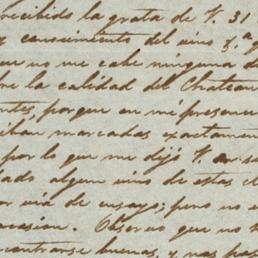 recibido la grata de V. 31
y conocimiento del vino
que no me cabe ninguna d
re la calidad del Chateau
tes, porque en mi presenc
iban marcadas exactamen
por lo que me dijó V. en su
dado algun vino de estas cl
por via de ensayo; pero no e
ocasion. Observo que no
contrarse buenas, y nos pas